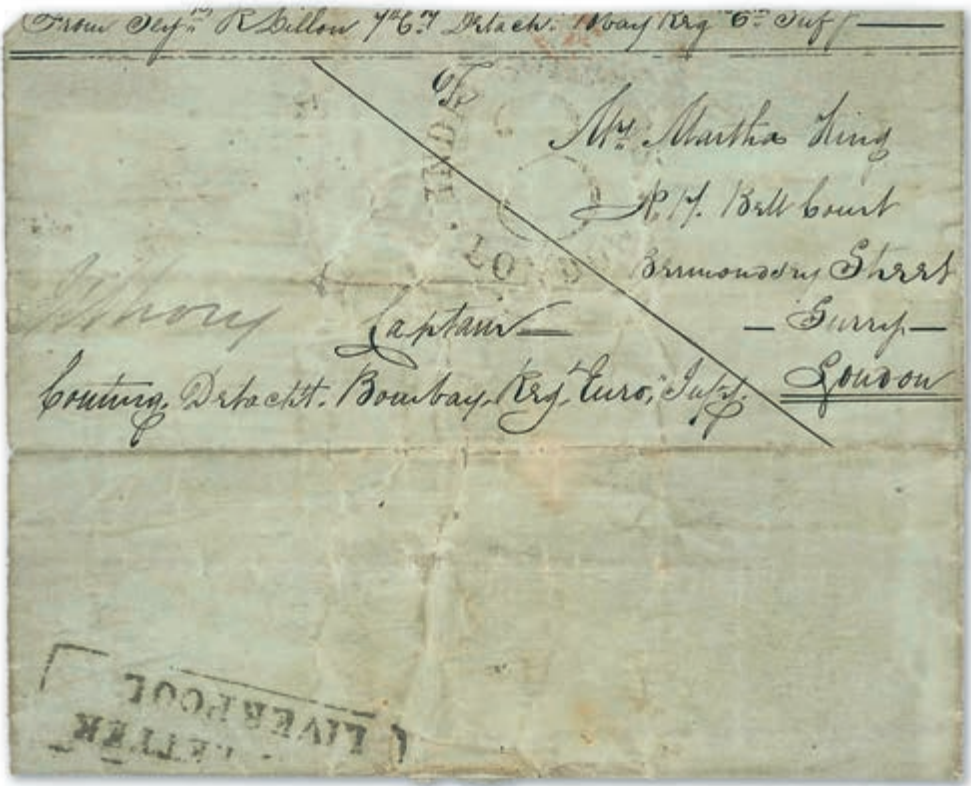 From Serjn. R Dillon 7th Cy. Detach. Bbay Reg E. Inf
To
Mrs. Martha King
No. 17. Bell Court
Bermondsey Street
Surry
London
Captain
Comting. Detacht. Bombay. Reg. Euro. Infy.
INDIA
LO
LIVERPOOL
LETTER